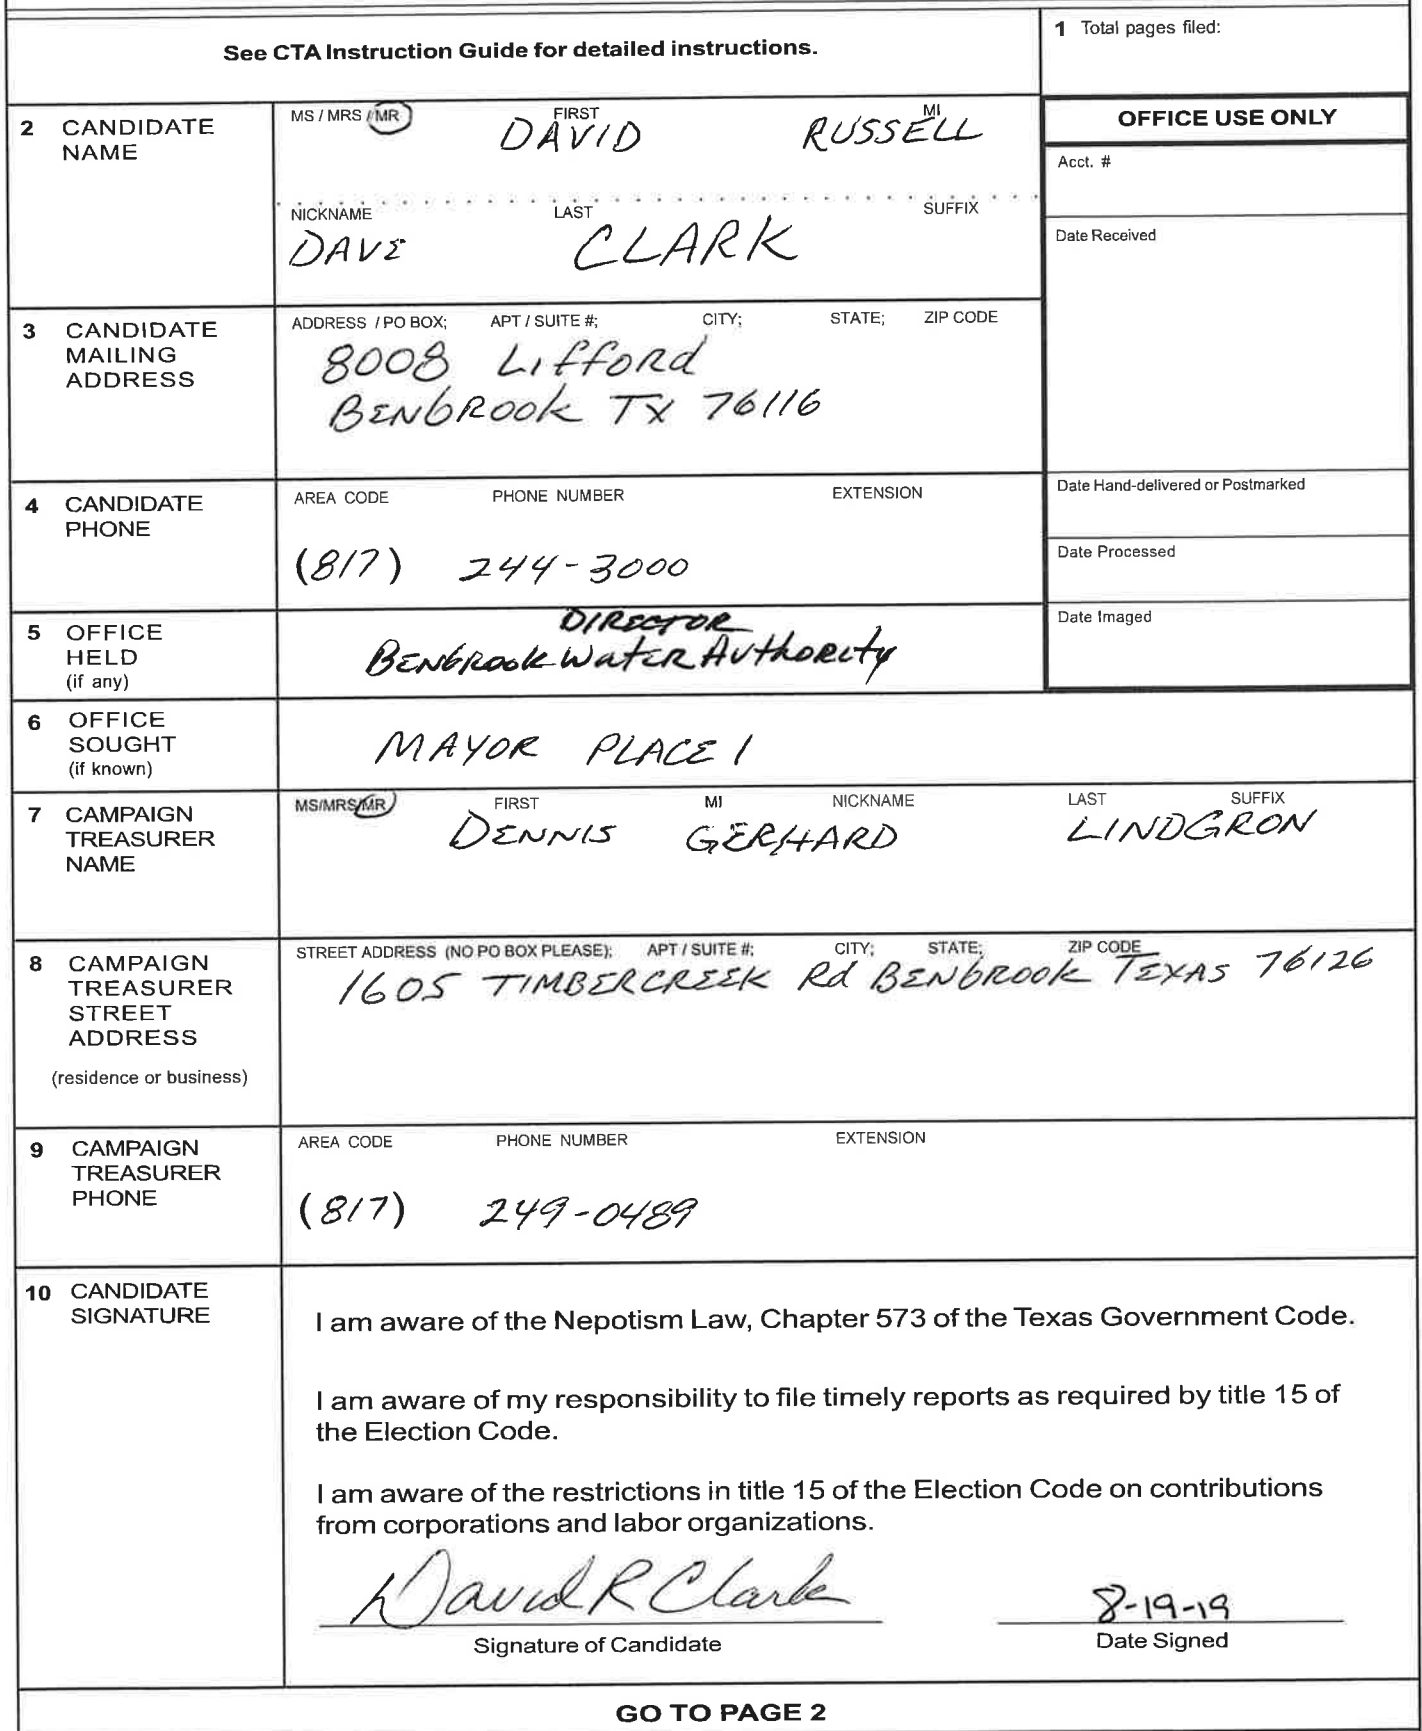 See CTA Instruction Guide for detailed instructions.
1 Total pages filed:
2 CANDIDATE NAME
MS / MRS / MR FIRST MI
DAVID RUSSELL
NICKNAME LAST SUFFIX
DAVE CLARK
OFFICE USE ONLY
Acct. #
Date Received
3 CANDIDATE MAILING ADDRESS
ADDRESS / PO BOX; APT / SUITE #; CITY; STATE; ZIP CODE
8008 Lifford
BENbROOK TX 76116
4 CANDIDATE PHONE
AREA CODE PHONE NUMBER EXTENSION
(817) 244-3000
Date Hand-delivered or Postmarked
Date Processed
Date Imaged
5 OFFICE HELD (if any)
DIRECTOR
BENbROOK WATER AUthORITY
6 OFFICE SOUGHT (if known)
MAYOR PLACE 1
7 CAMPAIGN TREASURER NAME
MS/MRS/MR FIRST MI NICKNAME LAST SUFFIX
DENNIS GERHARD LINDGRON
8 CAMPAIGN TREASURER STREET ADDRESS (residence or business)
STREET ADDRESS (NO PO BOX PLEASE); APT / SUITE #; CITY; STATE; ZIP CODE
1605 TIMBERCREEK Rd BENbROOK TEXAS 76126
9 CAMPAIGN TREASURER PHONE
AREA CODE PHONE NUMBER EXTENSION
(817) 249-0489
10 CANDIDATE SIGNATURE
I am aware of the Nepotism Law, Chapter 573 of the Texas Government Code.
I am aware of my responsibility to file timely reports as required by title 15 of
the Election Code.
I am aware of the restrictions in title 15 of the Election Code on contributions
from corporations and labor organizations.
David R Clark 8-19-19
Signature of Candidate Date Signed
GO TO PAGE 2